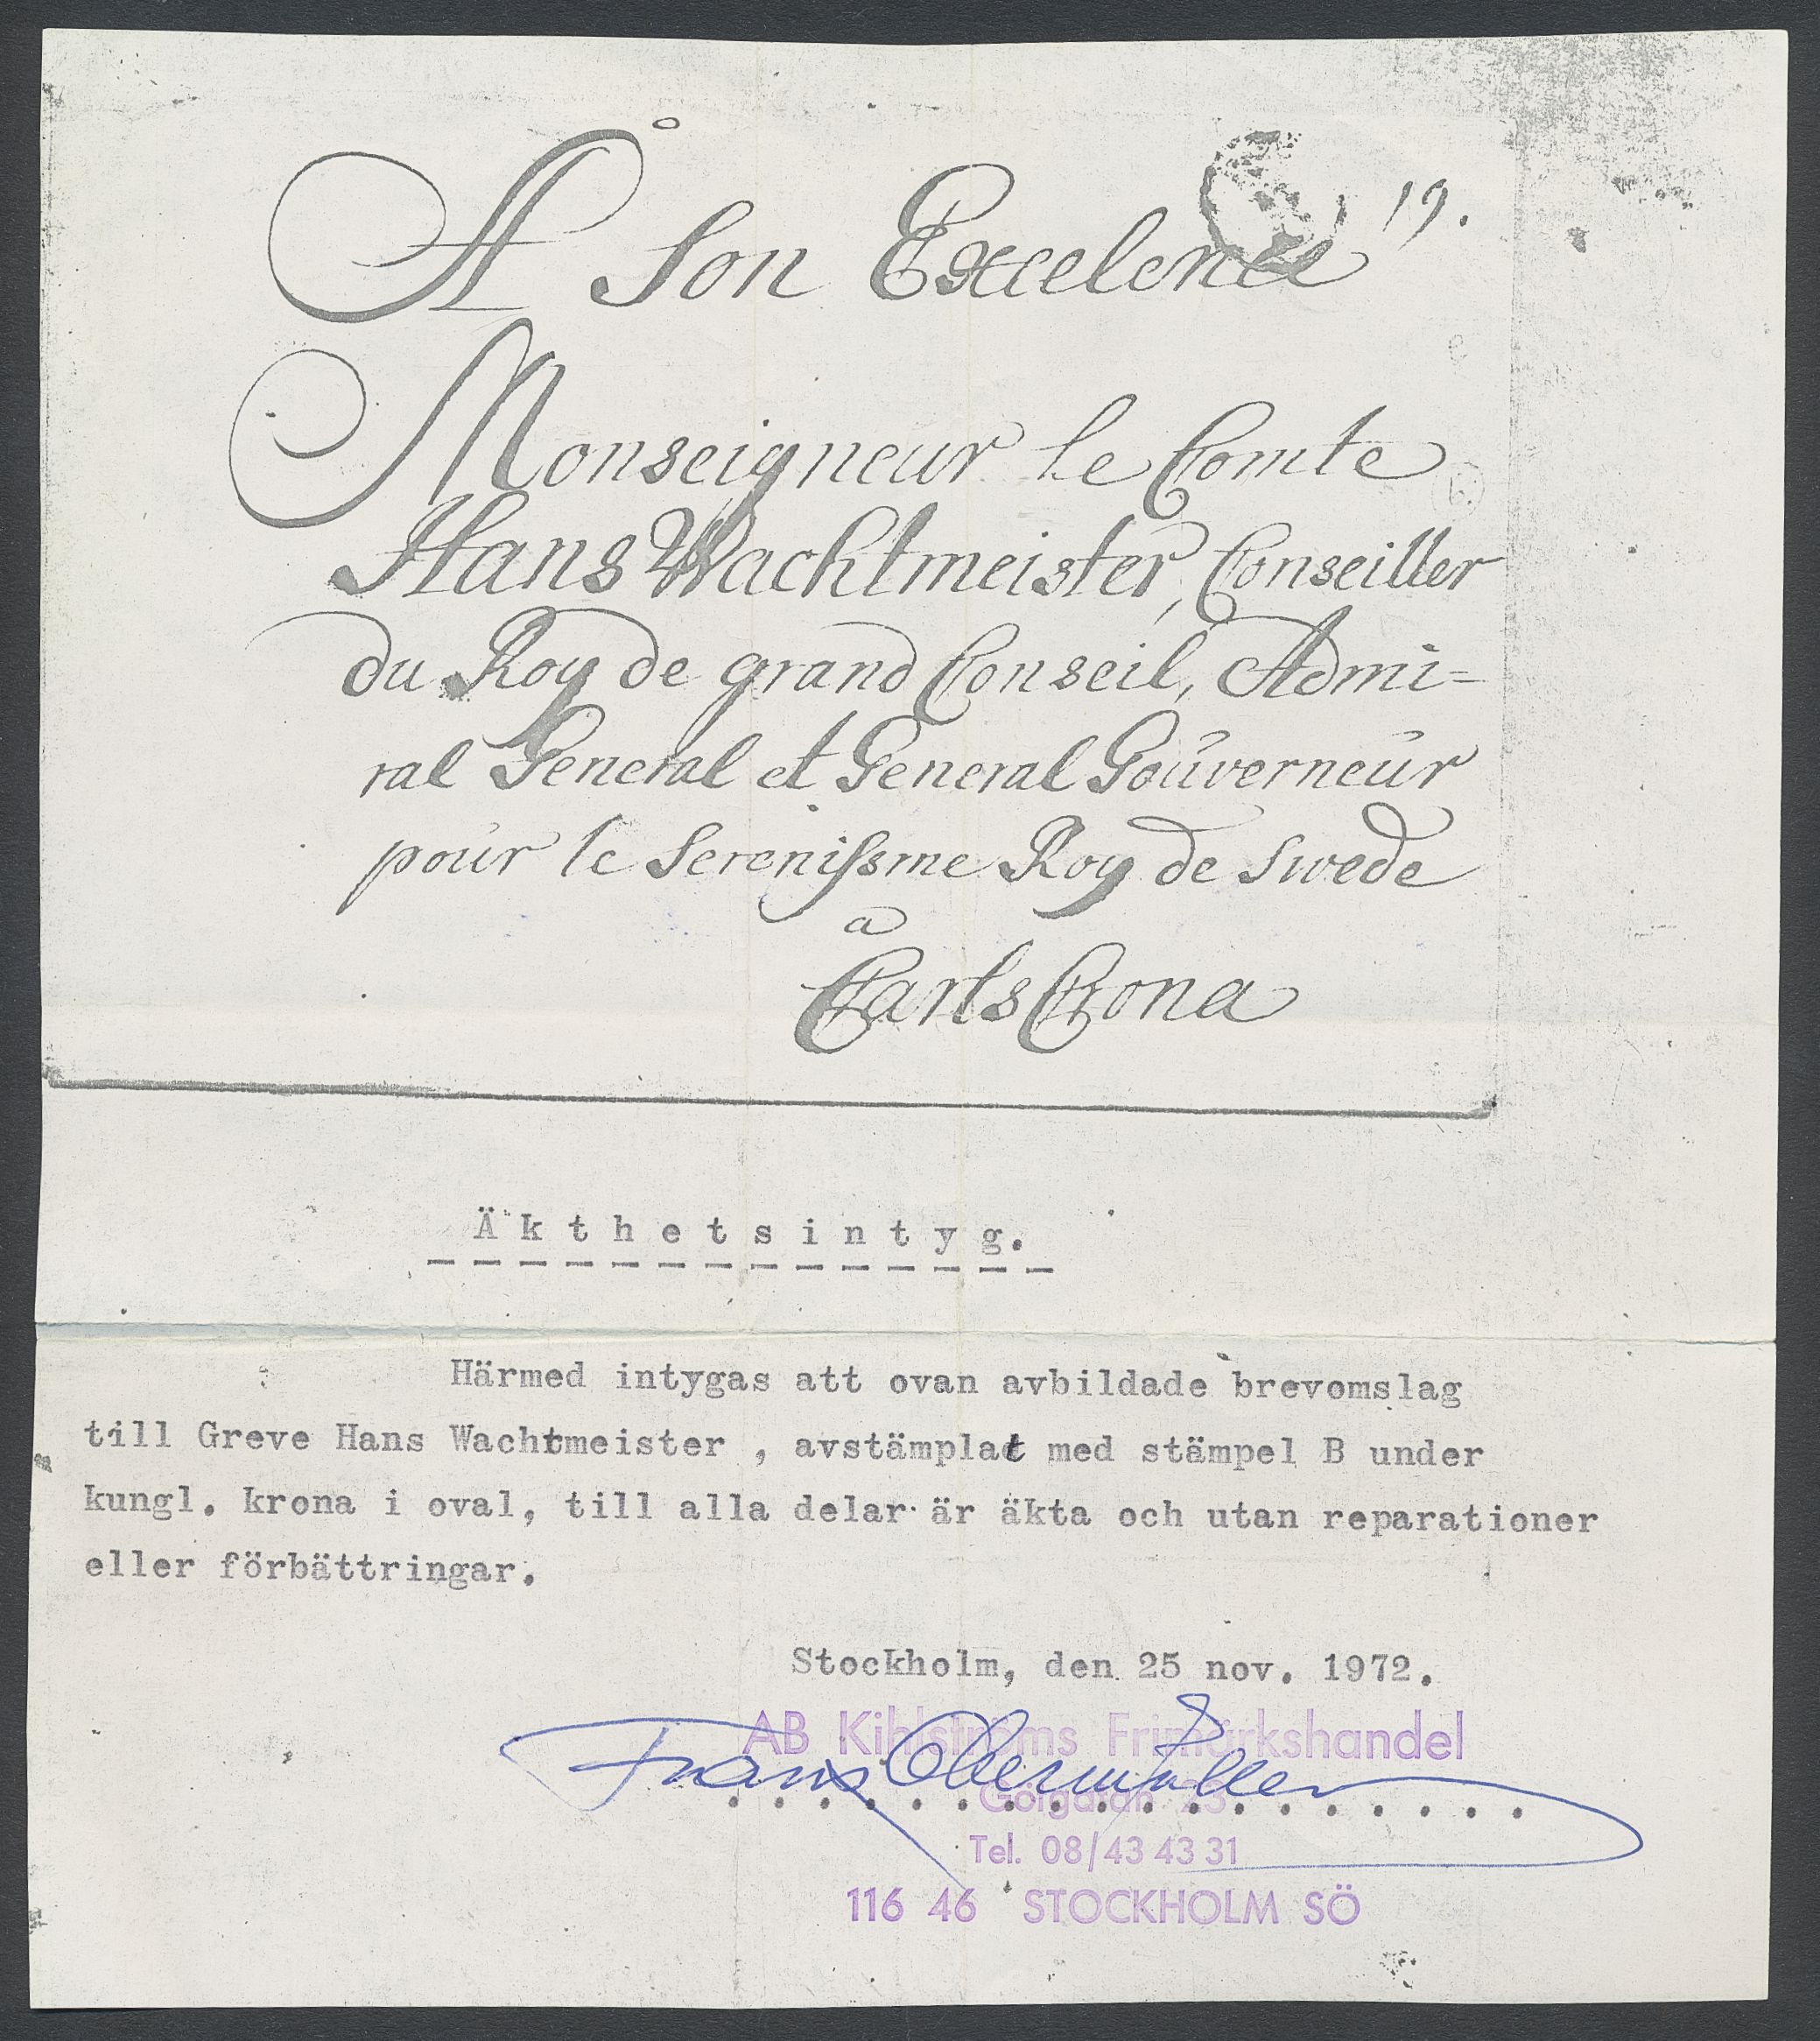 A Son Excelence 19.
Monseigneur le Comte
Hans Wachtmeister, Conseiller
du Roy de grand Conseil, Admi=
ral General et General Gouverneur
pour le Serenissme Roy de Swede
a
Carls Crona
Äkthetsintyg.
Härmed intygas att ovan avbildade brevomslag
till Greve Hans Wachtmeister , avstämplat med stämpel B under
kungl. krona i oval, till alla delar är äkta och utan reparationer
eller förbättringar.
Stockholm, den 25 nov. 1972.
AB Kihlströms Frimärkshandel
Frans Obermüller
Götgatan 23
Tel. 08/43 43 31
116 46 STOCKHOLM SÖ